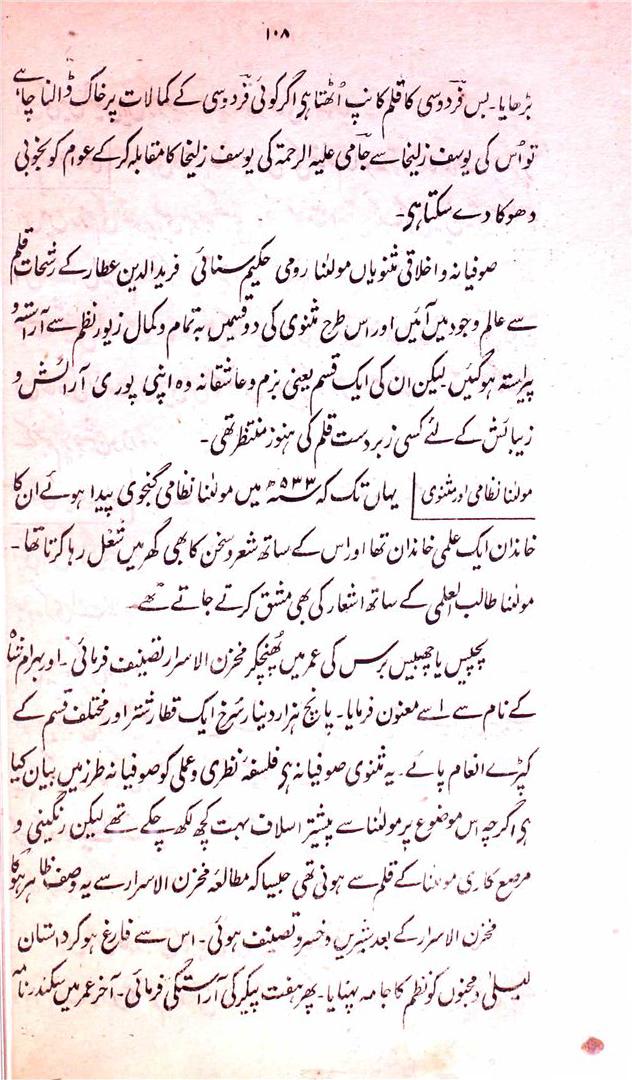 ۱۰۸
بڑھایا۔ بس فردوسی کا قلم کانپ اُٹھتا ہی اگر کوئی فردوسی کے کمالات پر خاک ڈالنا چاہے
تو اُس کی یوسف زلیخا سے جامی علیہ الرحمۃ کی یوسف زلیخا کا مقابلہ کرکے عوام کو بخوبی
دھوکا دے سکتا ہی۔
صوفیانہ و اخلاقی مثنویاں مولٰنا رومی حکیم سنائی فرید الدین عطار کے رشحات قلم
سے عالم وجود میں آئیں اور اس طرح مثنوی کی دو قسمیں بہ تمام و کمال زیور نظم سے آراستہ و
پیراستہ ہوگئیں لیکن ان کی ایک قسم یعنی بزم و عاشقانہ وہ اپنی پوری آرائش و
زیبائش کے لئے کسی زبردست قلم کی ہنوز منتظر تھی۔
مولٰنا نظامی اور مثنوی | یہاں تک کہ ۵۳۳ھ میں مولٰنا نظامی گنجوی پیدا ہوئے ان کا
خاندان ایک علمی خاندان تھا اور اس کے ساتھ شعر و سخن کا بھی گھر میں شغل رہا کرتا تھا۔
مولٰنا طالب العلمی کے ساتھ اشعار کی بھی مشق کرتے جاتے تھے۔
پچیس یا چھبیس برس کی عمر میں پُہنچکر مخزن الاسرار تصنیف فرمائی۔ اور بہرام شاہ
کے نام سے اسے معنون فرمایا۔ پانچ ہزار دینار سُرخ ایک قطار شتر اور مختلف قسم کے
کپڑے انعام پائے۔ یہ مثنوی صوفیانہ ہی فلسفۂ نظری و عملی کو صوفیانہ طرز میں بیان کیا
ہی اگرچہ اس موضوع پر مولٰنا سے پیشتر اسلاف بہت کچھ لکھ چکے تھے لیکن رنگینی و
مرصع کاری مولٰنا کے قلم سے ہونی تھی جیسا کہ مطالعۂ مخزن الاسرار سے یہ وصف ظاہر ہوگا
مخزن الاسرار کے بعد شیریں و خسرو تصنیف ہوئی۔ اس سے فارغ ہو کر داستان
لیلیٰ و مجنوں کو نظم کا جامہ پہنایا۔ پھر ہفت پیکر کی آراستگی فرمائی۔ آخر عمر میں سکندر نامہ